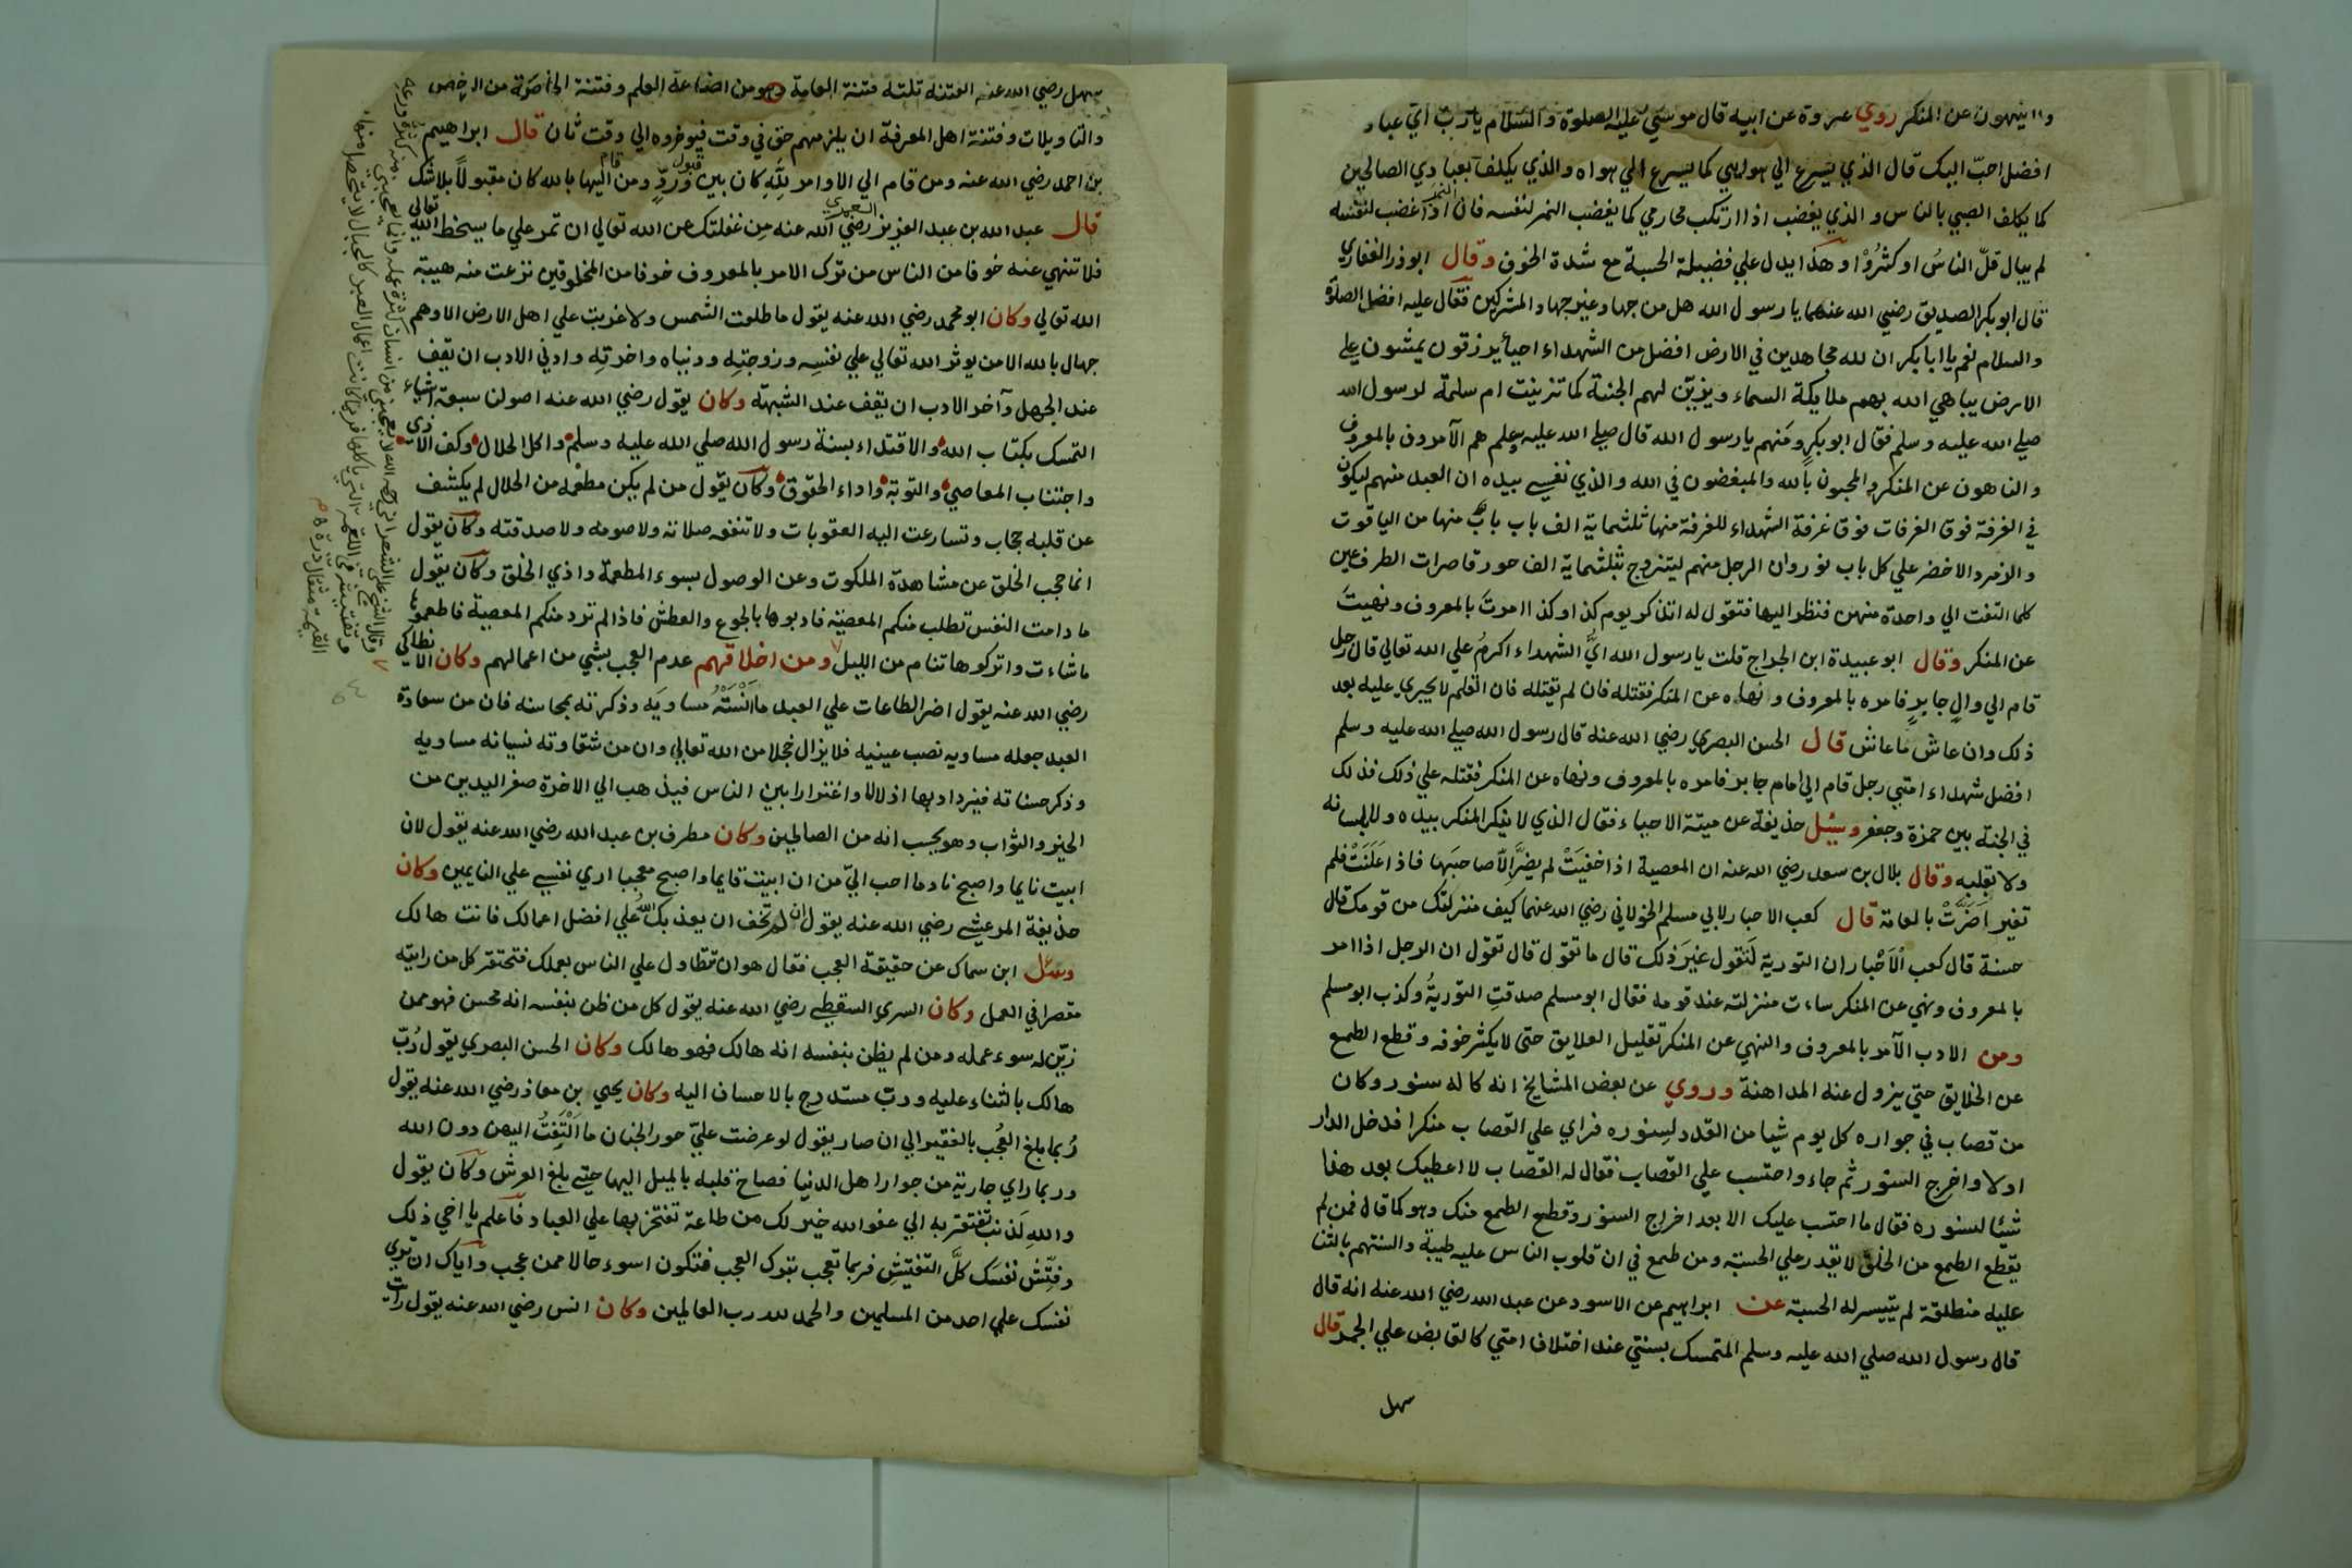 ولا ينهون عن المنكر روي عروة عن ابيه قال موسي عليه الصلوة والسلام يا رب اي عباد
افضل احبّ اليك قال الذي يسرع الي هوايي كما يسرع الي هواه والذي يكلف بعبادي الصالحين
كما يكلف الصبي بالناس والذي يغضب اذا ارتكب محارمي كما يغضب النمر لنفسه فان النمر اذا غضب لنفسه
لم يبال قلّ الناسُ او كثرُوْا وهكذا يدل علي فضيلة الحسبة مع شدة الخوف وقال ابوذر الغفاري
قال ابوبكر الصديق رضي الله عنهما يا رسول الله هل من جهاد غير جهاد المشركين فقال عليه افضل الصلوة
والسلام نعم يا ابا بكر ان لله مجاهدين في الارض افضل من الشهداء احياء يرزقون يمشون علي
الارض يباهي الله بهم ملايكة السماء ويزين لهم الجنة كما تزينت ام سلمة لرسول الله
صلي الله عليه وسلم فقال ابوبكر ومنهم يا رسول الله قال صلي الله عليه وسلم هم الآمرون بالمعروف
والناهون عن المنكر والمحبون بالله والمبغضون في الله والذي نفسي بيده ان العبد منهم ليكون
في الغرفة فوق الغرفات فوق غرفة الشهداء للغرفة منها ثلثماية الف باب باب منها من الياقوت
والزمرد الاخضر علي كل باب نور وان الرجل منهم ليتزوج بثلثماية الف حور قاصرات الطرف عين
كلما التفت الي واحدة منهن فنظر اليها فتقول له اتذكر يوم كذا وكذا امرتَ بالمعروف ونهيتَ
عن المنكر وقال ابو عبيدة ابن الجراح قلت يا رسول الله ايُّ الشهداء اكرمُ علي الله تعالي قال رجل
قام الي والٍ جايرٍ فامره بالمعروف ونهاه عن المنكر فقتله فان لم يقتله فان القلم لا يجري عليه بعد
ذلك وان عاش ما عاش قال الحسن البصري رضي الله عنه قال رسول الله صلي الله عليه وسلم
افضل شهداء امتي رجل قام الي امام جاير فامره بالمعروف ونهاه عن المنكر فقتله علي ذلك فذلك
في الجنة بين حمزة وجعفر وسئل حذيفة عن ميتة الاحياء فقال الذي لا ينكر المنكر بيده ولا بلسانه
ولا بقلبه وقال بلال بن سعد رضي الله عنه ان المعصية اذا خفيَتْ لم يضرَّ الّا صاحبَها فاذا اعلَنَتْ فلم
تغير اَضرَّتْ بالعامة قال كعب الاحبار لابي مسلم الخولاني رضي الله عنهما كيف منزلتك من قومك قال
حسنة قال كعب الْاَحْبار ان التورية لَتقول غيرَ ذلك قال ما تقول قال تقول ان الرجل اذا امر
بالمعروف ونهي عن المنكر ساءت منزلته عند قومه فقال ابو مسلم صدقتِ التوريةُ وكذب ابو مسلم
ومن الادب الآمر بالمعروف والنهي عن المنكر تقليل العلايق حتي لا يكثر خوفه وقطع الطمع
عن الخلايق حتي يزول عنه المداهنة وروي عن بعض المشايخ انه كا له سنور وكان
من قصاب في جواره كل يوم شيا من القدد لسِنوره فراي علي القصاب منكرا فدخل الدار
اولا واخرج السنور ثم جاء واحتسب علي القصاب فقال له القصاب لا اعطيك بعد هذا
شيئا لسنوره فقال ما احتسب عليك الا بعد اخراج السنور وقطع الطمع منك وهو كما قال فمن لم
يقطع الطمع من الخلق لا يقدر علي الحسبة ومن طمع في ان قلوب الناس عليه طيبة والسنتهم بالثنا
عليه منطلقة لم يتيسر له الحسبة عن ابراهيم عن الاسود عن عبد الله رضي الله عنه انه قال
قال رسول الله صلي الله عليه وسلم المتمسك بسنتي عند اختلاف امتي كالقابض علي الجمر قال
سهل
سهل رضي الله عنه الفتنة ثلثة فتنة العامة وهو من اضاعة العلم وفتنة الخاصّة من الرخص
والتاويلات وفتنة اهل المعرفة ان يلزمهم حق في وقت فيوخروه الي وقت ثان قال ابراهيم
بن احمد رضي الله عنه ومن قام الي الاوامر لِلّهِ كان بين قبول وردٍّ ومن قام اليها بالله كان مقبولاً بلاشك
قال عبد الله بن عبد العزيز العمري رضي الله عنه من غفلتك عن الله تعالي ان تمر علي ما يسخط الله تعالي
فلا تنهي عنه خوفا من الناس من ترك الامر بالمعروف خوفا من المخلوقين نزعت منه هيبة
الله تعالي وكان ابو محمد رضي الله عنه يقول ما طلعت الشمس ولا غربت علي اهل الارض الا وهم
جهال بالله الا من يوثر الله تعالي علي نفسِه وزوجتِه ودنياه واخرتِه وادني الادب ان يقف
عند الجهل وآخر الادب ان يقف عند الشبهة وكان يقول رضي الله عنه اصولنا سبعة اشياء
التمسك بكتاب الله والاقتداء بسنة رسول الله صلي الله عليه وسلم واكل الحلال وكف الاذي
واجتناب المعاصي والتوبة واداء الحقوق وكان يقول من لم يكن مطعمه من الحلال لم يكشف
عن قلبه حجاب وتسارعت اليه العقوبات ولا تنفعه صلاته ولا صومه ولا صدقته وكان يقول
انما حجب الخلق عن مشاهدة الملكوت وعن الوصول بسوء المطعمة واذي الخلق وكان يقول
ما دامت النفس تطلب منكم المعصية فادبوها بالجوع والعطش فاذا لم ترد منكم المعصية فاطعموها
ما شاءت واتركوها تنام من الليل ومن اخلاقهم عدم العجب بشي من اعمالهم وكان الانطاكي
رضي الله عنه يقول اضر الطاعات علي العبد ما اَنْسَتْهُ مساويَه وذكرته بمحاسنه فان من سعادة
العبد جعله مساويه نصب عينيه فلا يزال خجلا من الله تعالي وان من شقاوته نسيانه مساويه
وذكر حسناته فيزداد بها اذلالا واغترارا بين الناس فيذهب الي الاخرة صفر اليدين من
الخير والثواب وهو يحسب انه من الصالحين وكان مطرف بن عبد الله رضي الله عنه يقول لان
ابيت نايما واصبح نادما احب اليّ من ان ابيت قايما واصبح معجبا اري نفسي علي النايمين وكان
حذيفة المرعشي رضي الله عنه يقول ان لم تخف ان يعذبك الله علي افضل اعمالك فانت هالك
وسئل ابن سماك عن حقيقة العجب فقال هو ان تتطاول علي الناس بعملك فتحتقر كل من رايته
مقصرا في العمل وكان السري السقطي رضي الله عنه يقول كل من ظن بنفسه انه محسن فهو ممن
زيّن له سوء عمله ومن لم يظن بنفسه انه هالك فهو هالك وكان الحسن البصري يقول رُبّ
هالك بالثناء عليه وربّ مستدرج بالاحسان اليه وكان يحيي بن معاذ رضي الله عنه يقول
رُبما بلغ العُجْب بالفقير الي ان صار يقول لو عرضت عليّ حور الجنان ما اَلْتَفِتُ اليهن دون الله
وربما راي جارية من جوار اهل الدنيا فصاح قلبه بالميل اليها حتي بلغ العرش وكان يقول
واللهِ لَذنب تفتقر به الي عفو الله خير لك من طاعة تفتخر بها علي العباد فاعلم يا اخي ذلك
وفتِّش نفسَك كلَّ التفتيشِ فربما تعجب بترك العجب فتكون اسوء حالا ممن عجب واياك ان تري
نفسك علي احد من المسلمين والحمد لله رب العالمين وكان انس رضي الله عنه يقول رايت